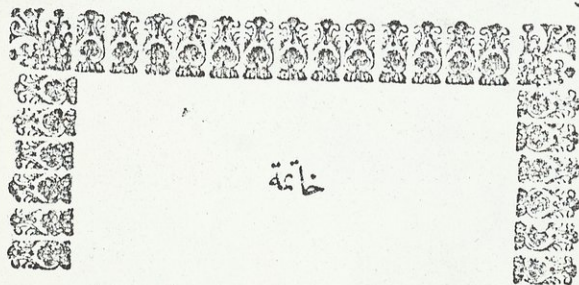 خاتمة